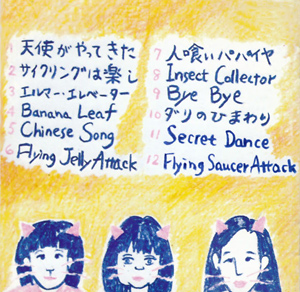 1 天使がやってきた
2 サイクリングは楽し
3 エルマー・エレベーター
4 Banana Leaf
5 Chinese Song
6 Flying Jelly Attack
7 人喰いパパイヤ
8 Insect Collector
9 Bye Bye
10 ダリのひまわり
11 Secret Dance
12 Flying Saucer Attack